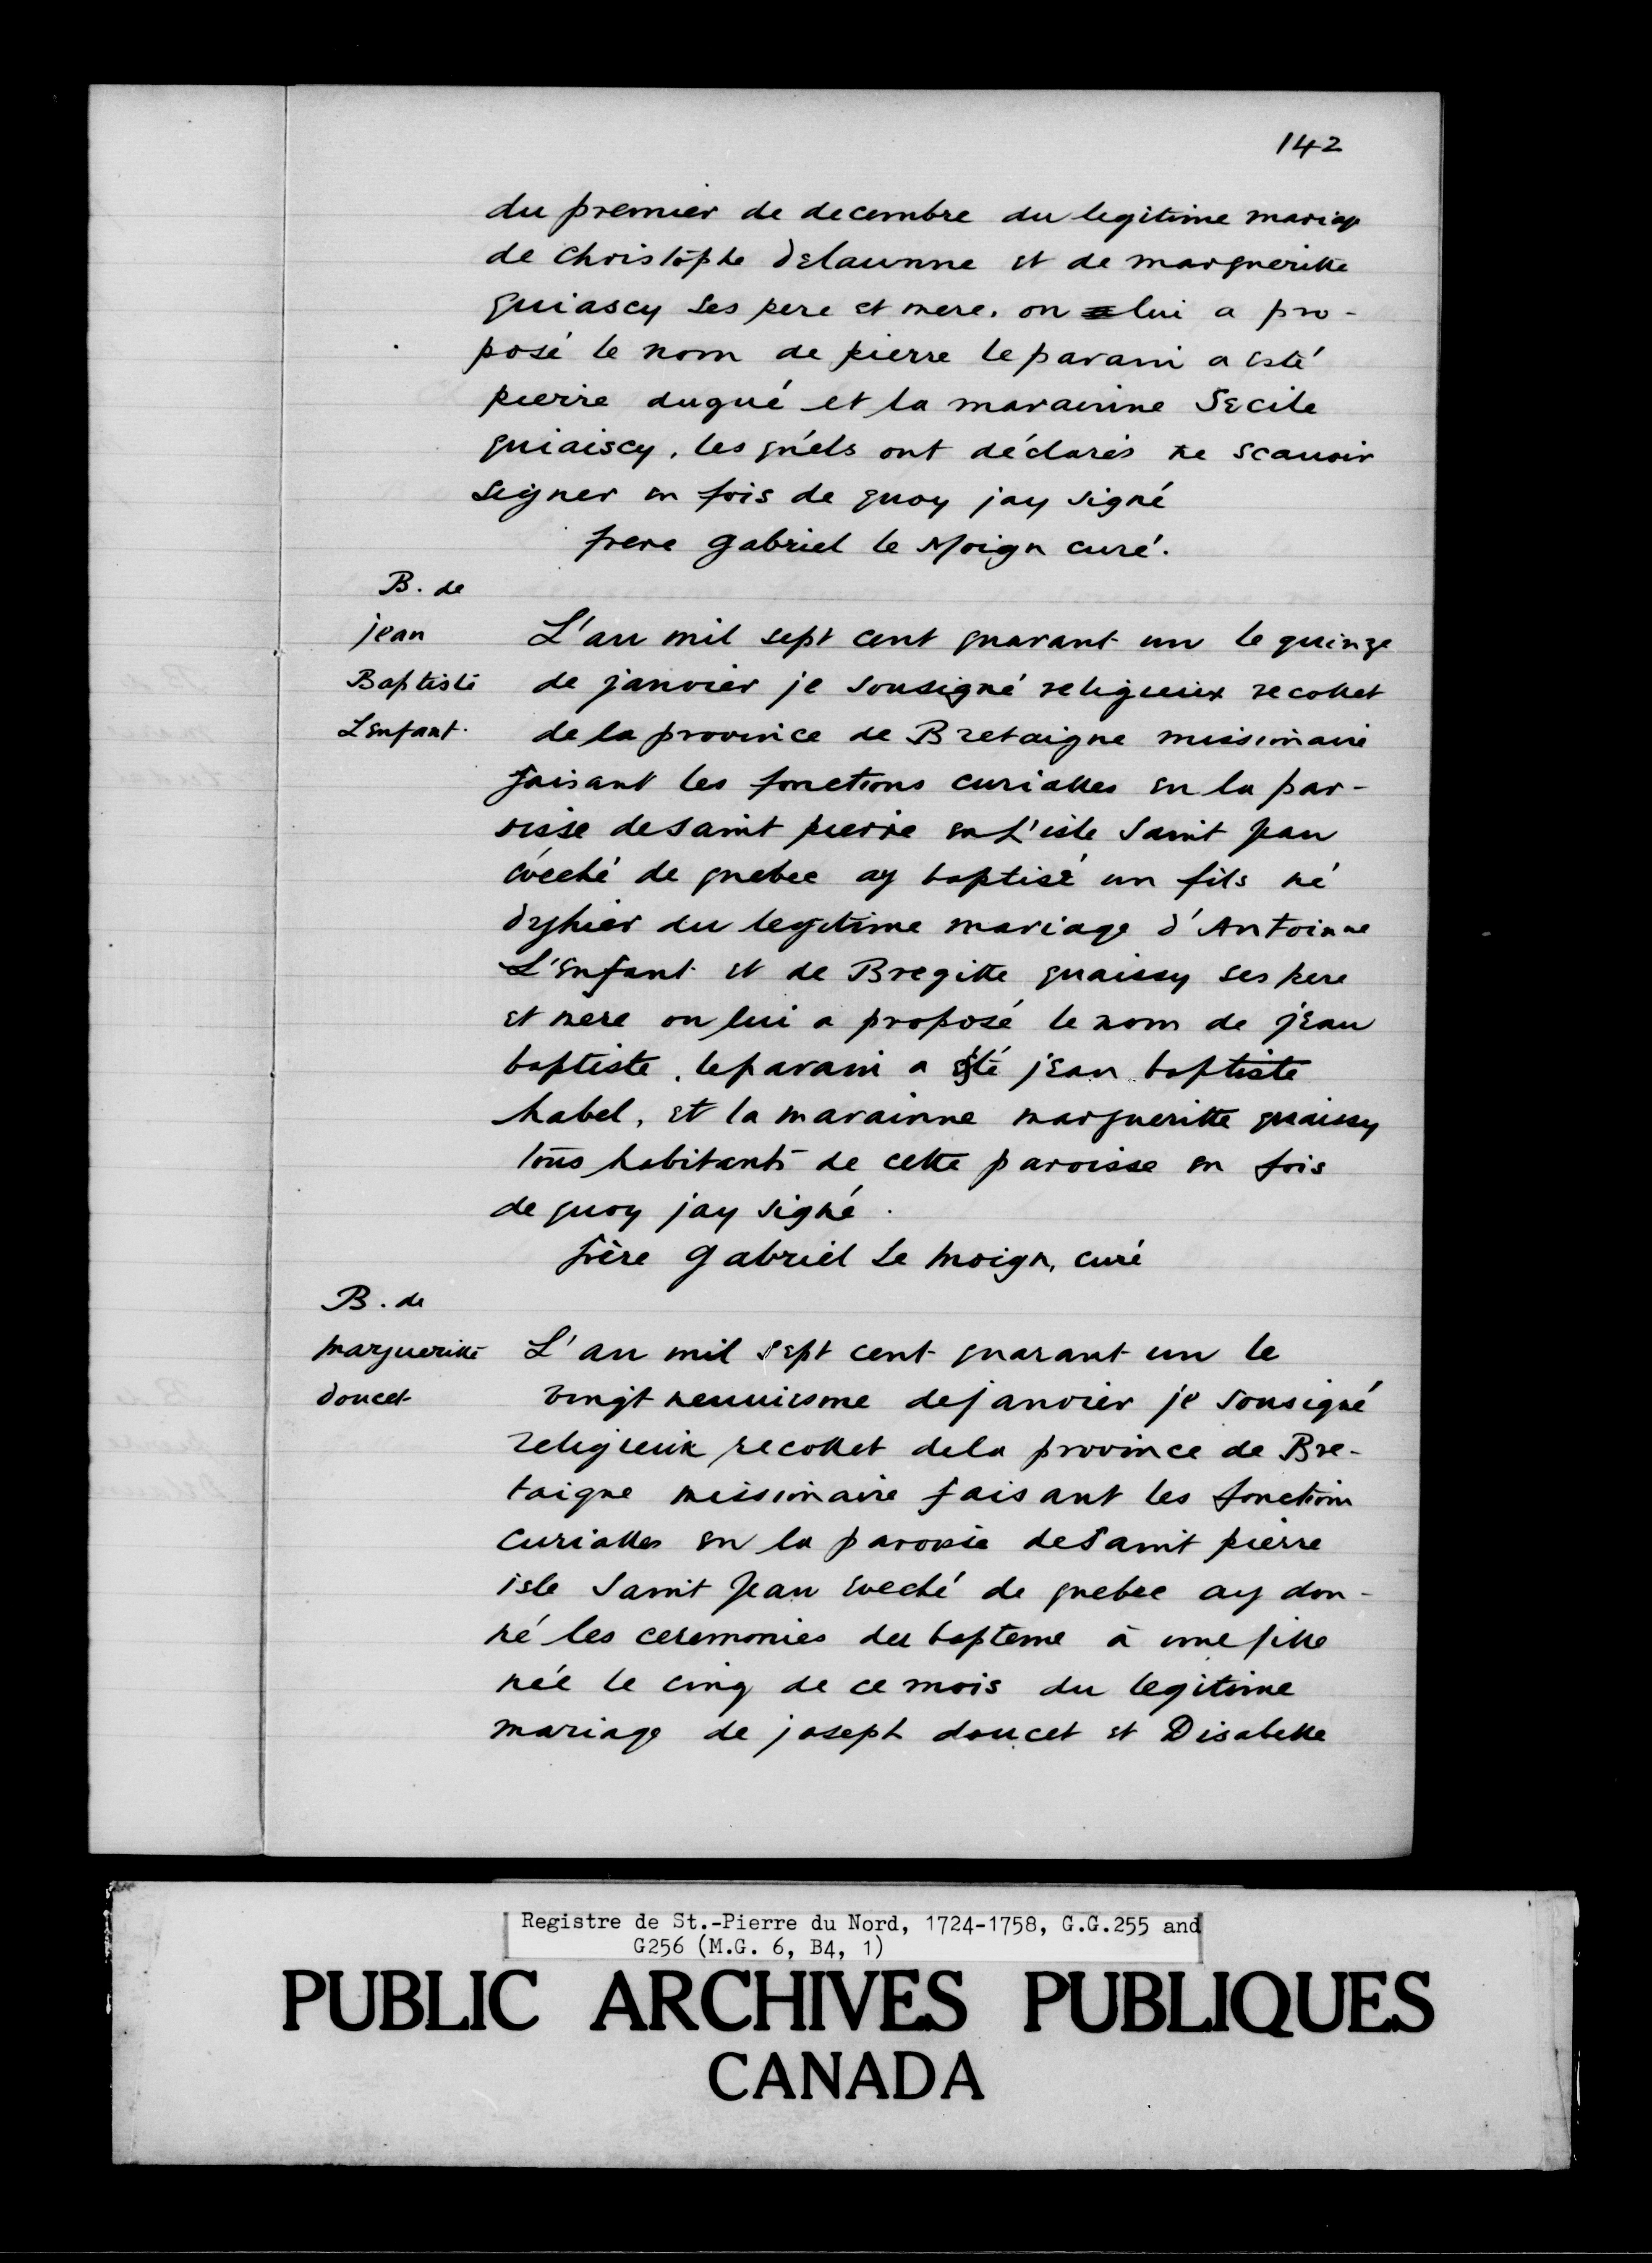 142
du premier de decembre du legitime mariage
de christophe delaunne et de margueritte
quiascy ses pere et mere. on lui a pro-
posé le nom de pierre le parain a esté
pierre dugué et la marainne Secile
quiaiscy, les quels ont déclarés ne scauoir
signer en fois de quoy jay signé
frere gabriel le Moign curé.
B. de
jean
Baptiste
Lenfant.
L'an mil sept cent quarant un le quinze
de janvier je sousigné religieuix recollet
de la province de Bretaigne missionaire
faisant les fonctions curialles en la par-
oisse de saint pierre en L'isle saint jean
évéché de quebec ay baptisé un fils né
dyhier du legitime mariage d'Antoinne
L'enfant et de Bregitte quaissy ses pere
et mere on lui a proposé le nom de jean
baptiste. le parain a esté jean baptiste
habel, et la marainne margueritte quaissy
tous habitants de cette paroisse en fois
de quoy jay signé.
frère Gabriel Le Moign, curé
B. de
Margueritte
doucet
L'an mil sept cent quarant un le
vingt neuuiesme de janvier je sousigné
religieuix recollet de la province de Bre-
taigne missionaire faisant les fonction
curialles en la paroisie de saint pierre
isle saint jean eveché de quebec ay don-
né les ceremonies du bapteme à une fille
née le cinq de ce mois du legitime
mariage de joseph doucet et Disabelle
Registre de St.-Pierre du Nord, 1724-1758, G.G.255 and
G256 (M.G. 6, B4, 1)
PUBLIC ARCHIVES PUBLIQUES
CANADA